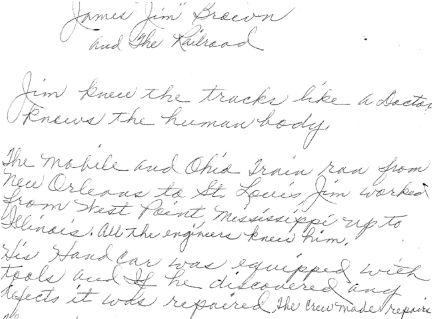 James "Jim" Brown
and The Railroad
Jim knew the tracks like a Doctor
knows the human body.
The Mobile and Ohio Train ran from
New Orleans to St Louis Jim worked
from West Point, Mississippi up to
Illinois. All the engineers knew him.
His Hand car was equipped with
tools and If he discovered any
defects it was repaired. The crew made repairs